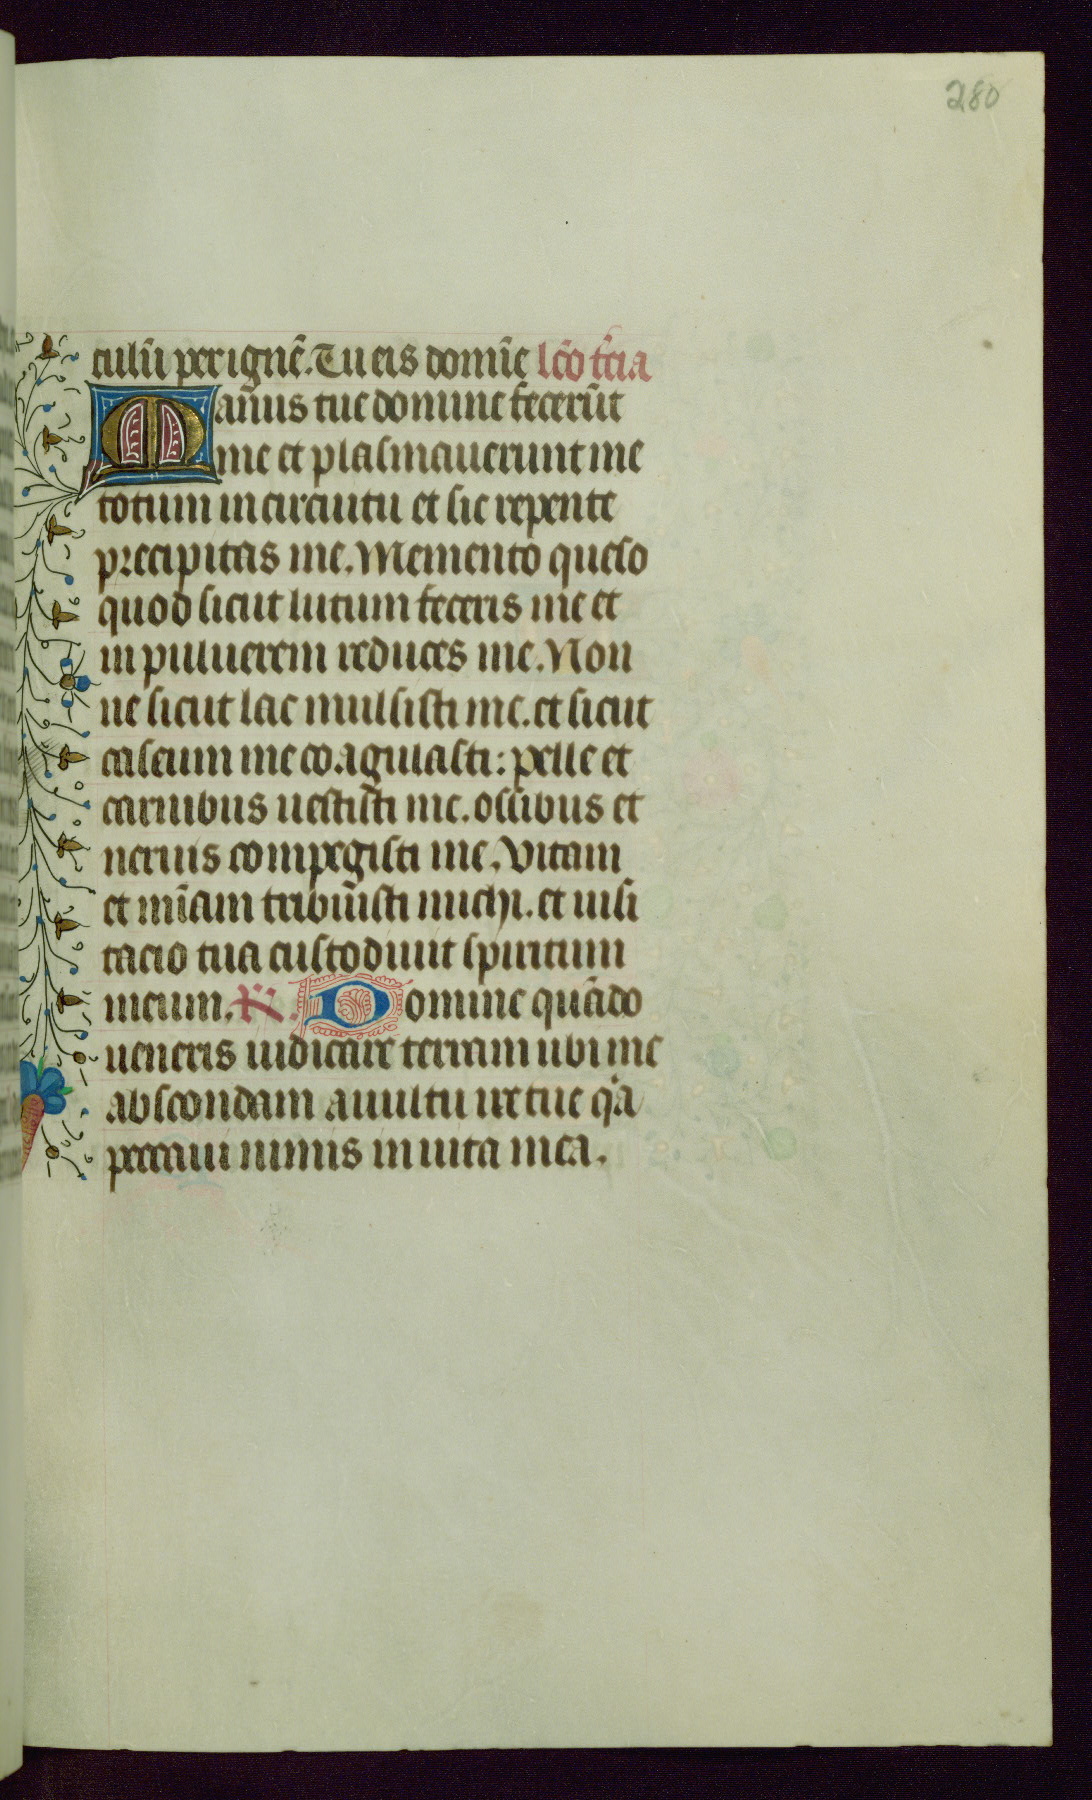 280
culū per ignē. Tu eis domīe lc̄o tc̄ia
Manus tue domine fecerūt
me et plasmauerunt me
totum in circuitu et sic repente
precipitas me. Memento queso
quod sicut lutum feceris me et
in puluerem reduces me. Non
ne sicut lac mulsisti me. et sicut
caseum me coagulasti: pelle et
carnibus uestisti me. ossibus et
neruis compegisti me. Vitam
et mīam tribuisti michi. et uisi
tacio tua custodiuit spiritum
meum. R. Domine quādo
ueneris iudicare terram ubi me
abscondam a uultu ire tue q̄a
peccaui nimis in uita mea.